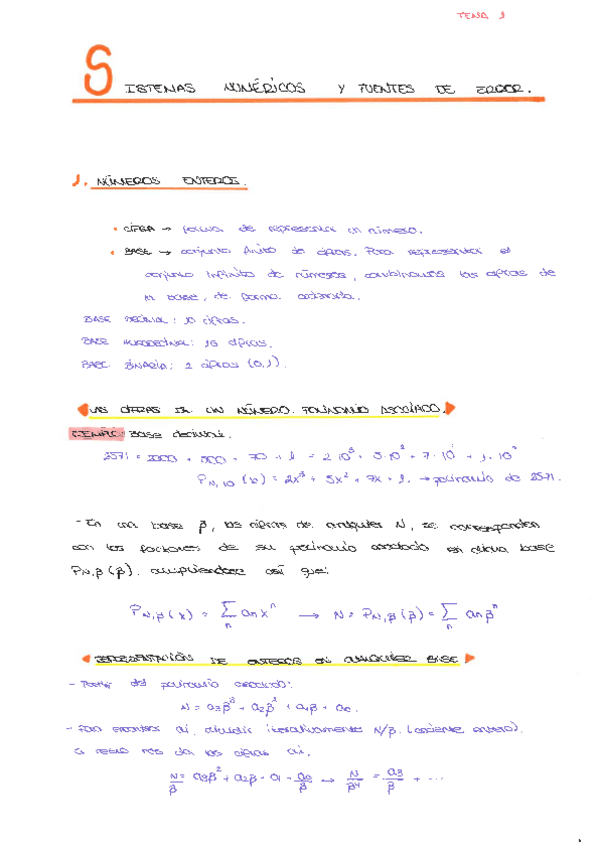 TEMA 1
SISTEMAS NUMÉRICOS Y FUENTES DE ERROR.
1. NÚMEROS ENTEROS.
• CIFRA → forma de representar un número.
• BASE → conjunto finito de cifras. Para representar el
conjunto infinito de números, combinamos las cifras de
la base, de forma ordenada.
BASE DECIMAL: 10 cifras.
BASE HEXADECIMAL: 16 cifras.
BASE BINARIA: 2 cifras (0,1).
LAS CIFRAS DE UN NÚMERO. POLINOMIO ASOCIADO.
EJEMPLO: Base decimal.
2571 = 2000 + 500 + 70 + 1 = 2·10³ + 5·10² + 7·10¹ + 1·10⁰
P_N,10 (x) = 2x³ + 5x² + 7x + 1. → polinomio de 2571.
- En una base β, las cifras de cualquier N, se corresponden
con los factores de su polinomio asociado en dicha base
P_N,β (β), cumpliéndose así que:
P_N,β (x) = ∑_n a_n x^n → N = P_N,β (β) = ∑_n a_n β^n
REPRESENTACIÓN DE ENTEROS EN CUALQUIER BASE
- Partir del polinomio asociado:
N = a₃β³ + a₂β² + a₁β + a₀.
- Para encontrar ai, dividir iterativamente N/β. (cociente entero).
El resto nos da las cifras ai.
N/β = a₃β² + a₂β + a₁ + a₀/β → N/β⁴ = a₃/β + ...